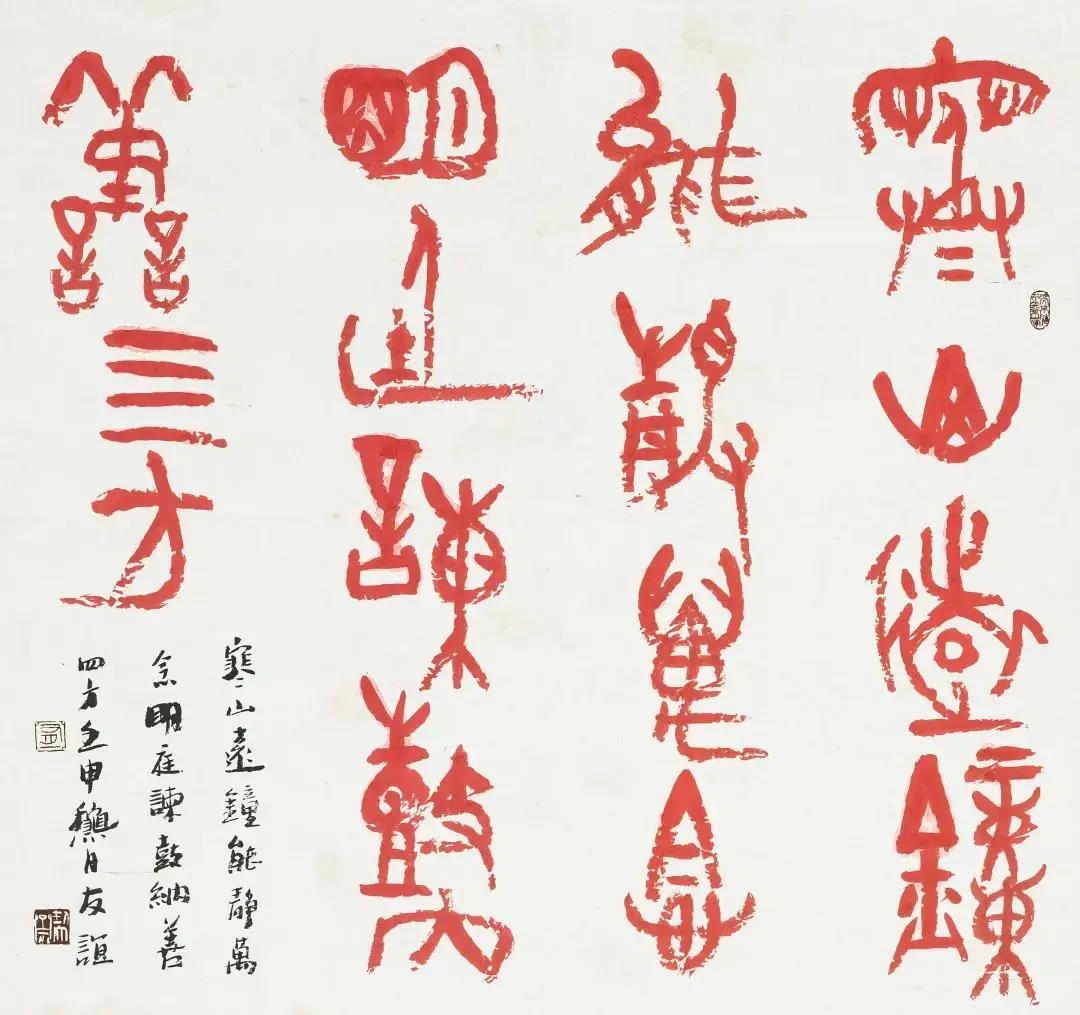 寒山遠鐘
能靜萬念
明廷諫鼓内
善四方
寒山遠鐘能靜萬
念明廷諫鼓納善
四方壬申龝月友誼